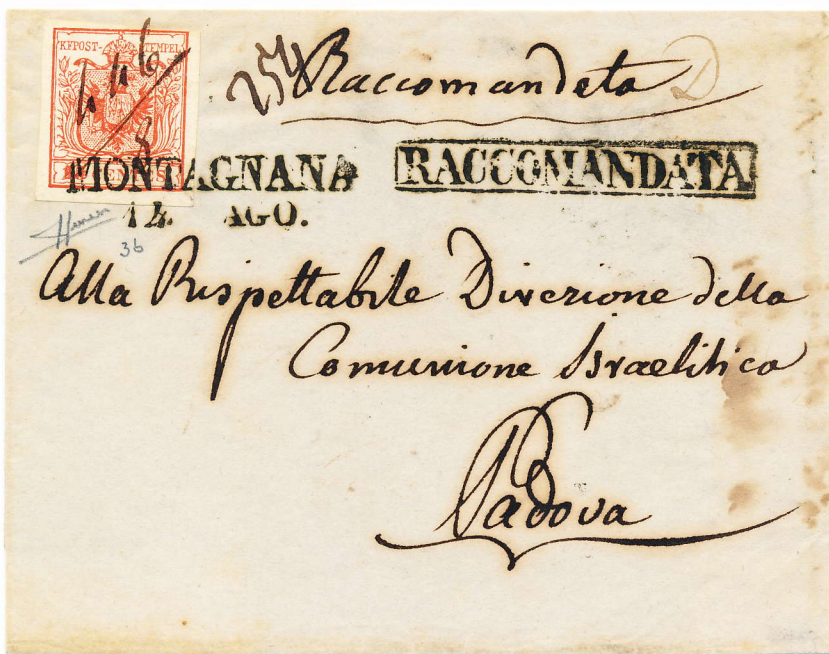 KKPOST-STEMPEL
254 Raccomandata D
MONTAGNANA RACCOMANDATA
14. AGO.
36
Alla Rispettabile Direzione della
Comunione Israelitica
Padova